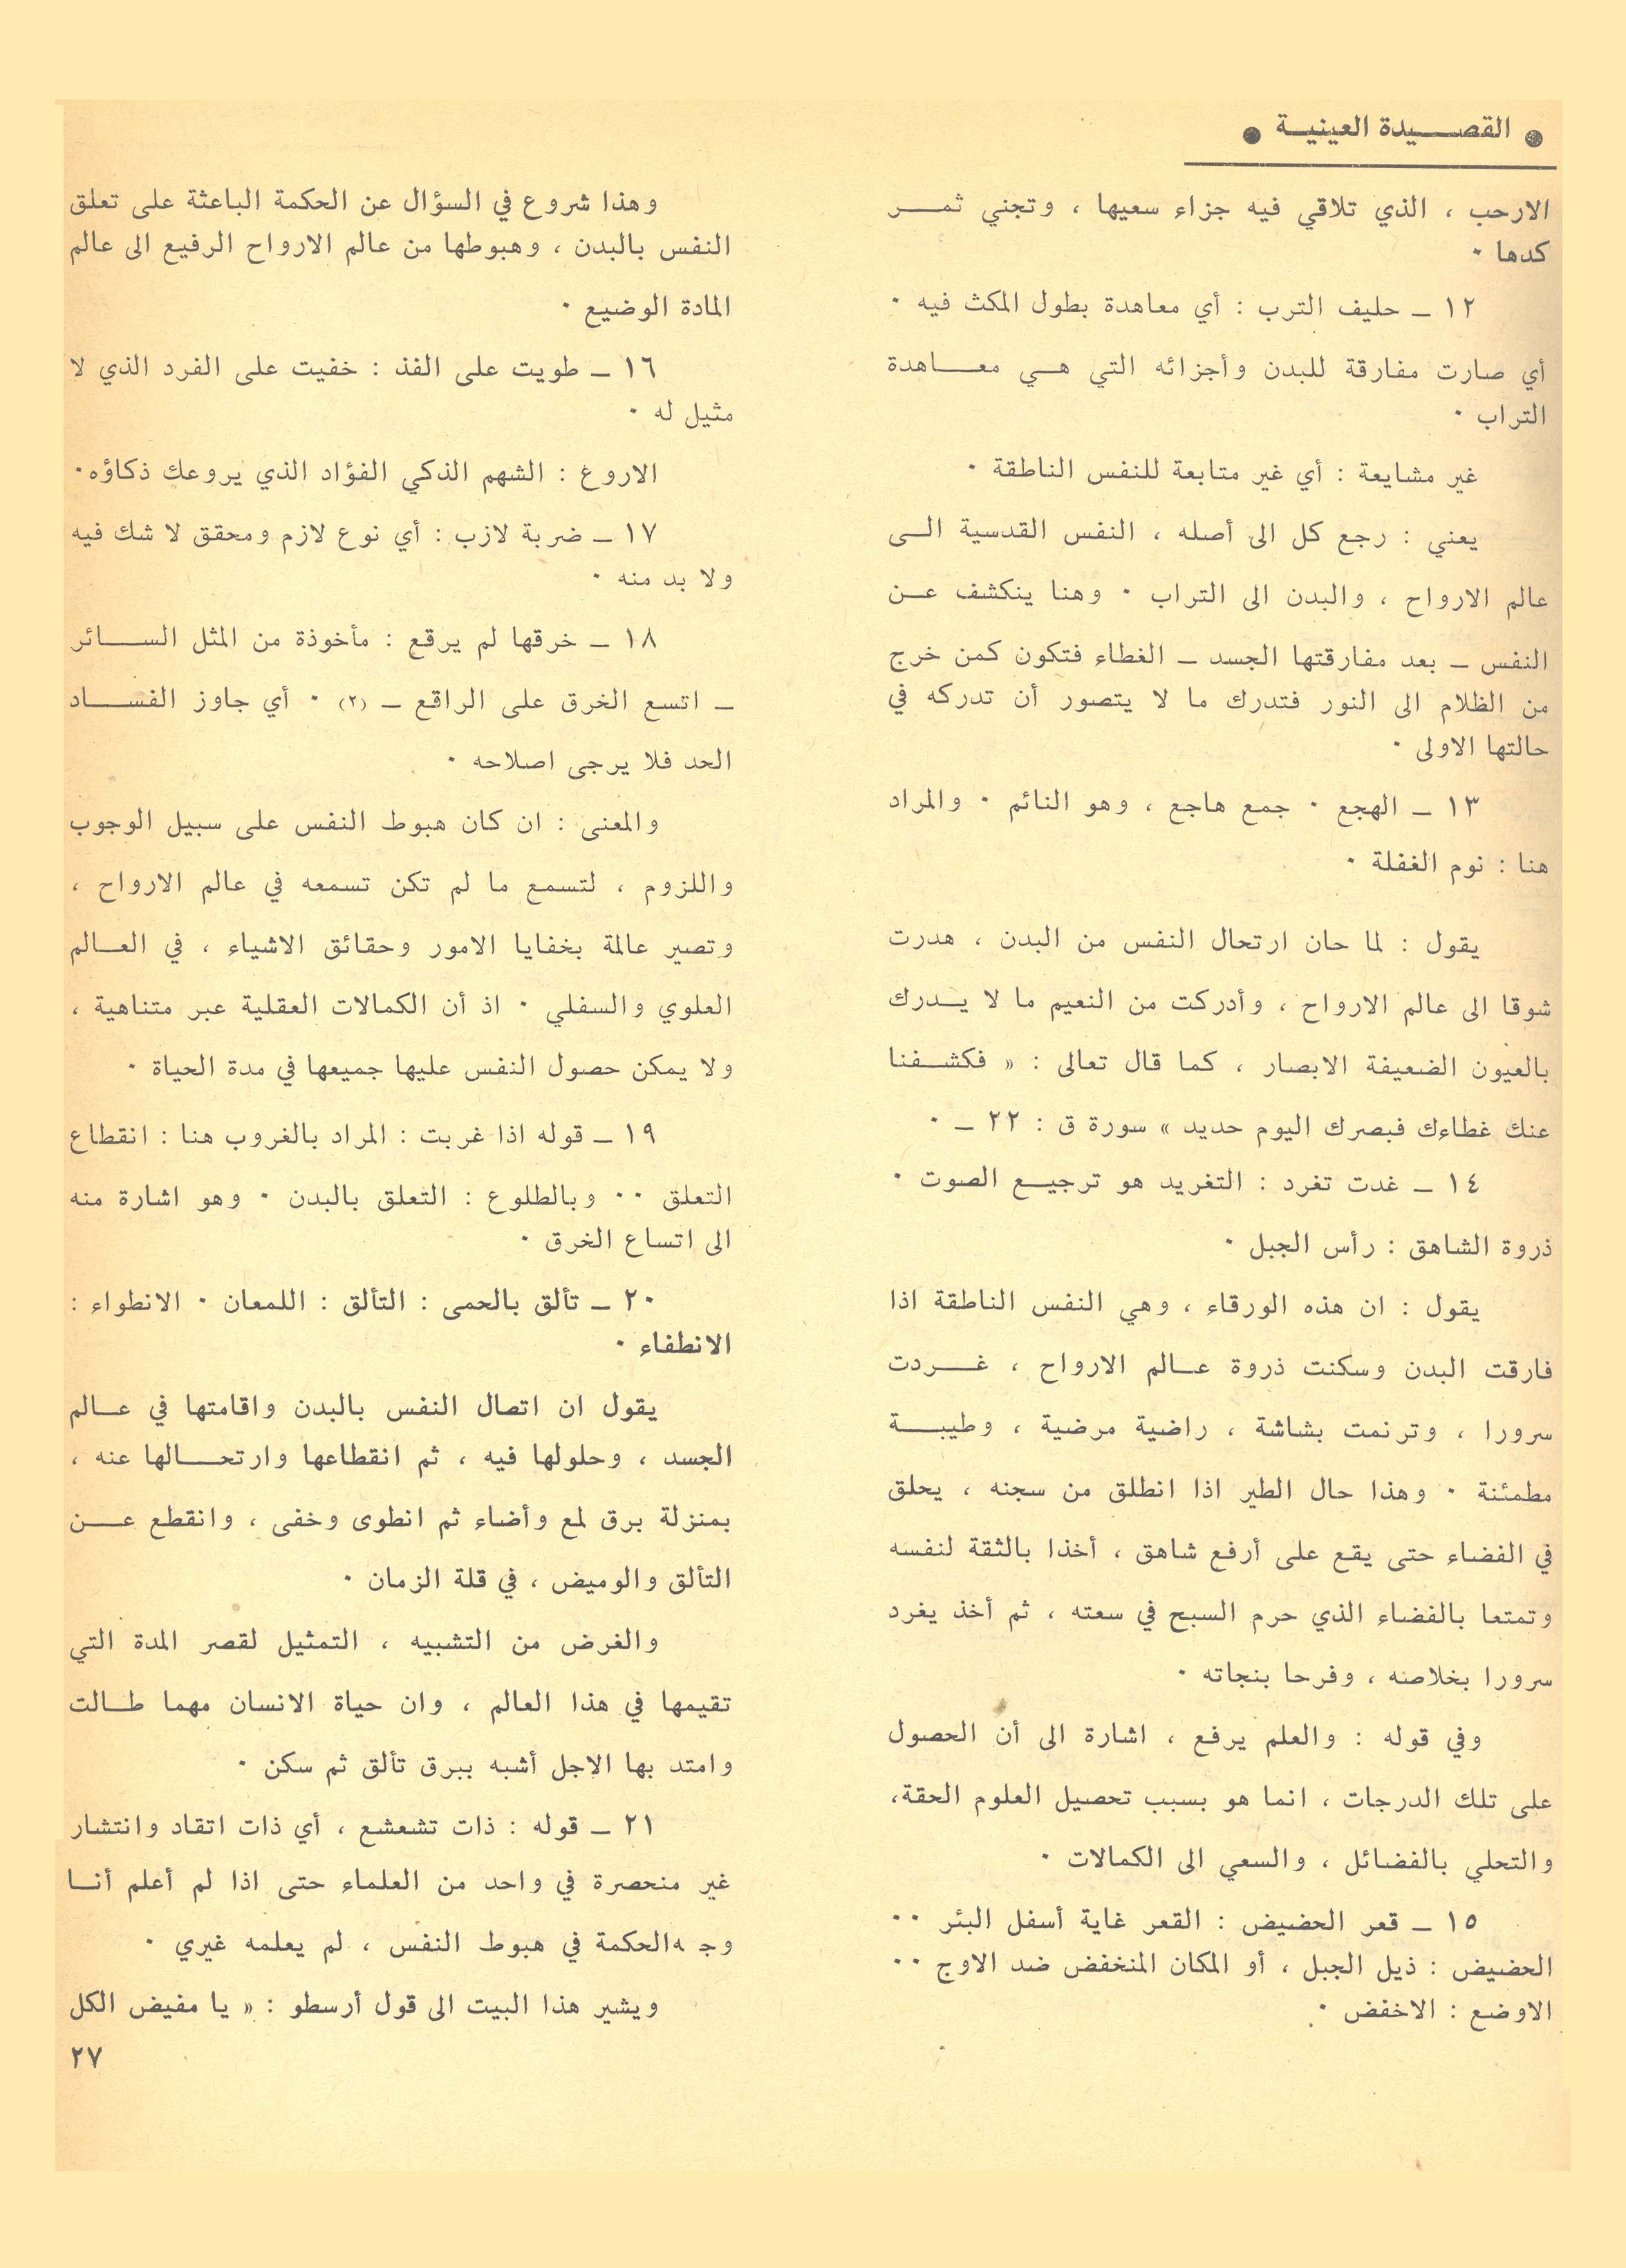 ● القصيدة العينية ●
الارحب ، الذي تلاقي فيه جزاء سعيها ، وتجني ثمر
كدها ٠
١٢ ـ حليف الترب : أي معاهدة بطول المكث فيه ٠
أي صارت مفارقة للبدن وأجزائه التي هي معاهدة
التراب ٠
غير مشايعة : أي غير متابعة للنفس الناطقة ٠
يعني : رجع كل الى أصله ، النفس القدسية الى
عالم الارواح ، والبدن الى التراب ٠ وهنا ينكشف عن
النفس ـ بعد مفارقتها الجسد ـ الغطاء فتكون كمن خرج
من الظلام الى النور فتدرك ما لا يتصور أن تدركه في
حالتها الاولى ٠
١٣ ـ الهجع ٠ جمع هاجع ، وهو النائم ٠ والمراد
هنا : نوم الغفلة ٠
يقول : لما حان ارتحال النفس من البدن ، هدرت
شوقا الى عالم الارواح ، وأدركت من النعيم ما لا يدرك
بالعيون الضعيفة الابصار ، كما قال تعالى : « فكشفنا
عنك غطاءك فبصرك اليوم حديد » سورة ق : ٢٢ ـ ٠
١٤ ـ غدت تغرد : التغريد هو ترجيع الصوت ٠
ذروة الشاهق : رأس الجبل ٠
يقول : ان هذه الورقاء ، وهي النفس الناطقة اذا
فارقت البدن وسكنت ذروة عالم الارواح ، غردت
سرورا ، وترنمت بشاشة ، راضية مرضية ، وطيبة
مطمئنة ٠ وهذا حال الطير اذا انطلق من سجنه ، يحلق
في الفضاء حتى يقع على أرفع شاهق ، أخذا بالثقة لنفسه
وتمتعا بالفضاء الذي حرم السبح في سعته ، ثم أخذ يغرد
سرورا بخلاصه ، وفرحا بنجاته ٠
وفي قوله : والعلم يرفع ، اشارة الى أن الحصول
على تلك الدرجات ، انما هو بسبب تحصيل العلوم الحقة،
والتحلي بالفضائل ، والسعي الى الكمالات ٠
١٥ ـ قعر الحضيض : القعر غاية أسفل البئر ٠٠
الحضيض : ذيل الجبل ، أو المكان المنخفض ضد الاوج ٠٠
الاوضع : الاخفض ٠
وهذا شروع في السؤال عن الحكمة الباعثة على تعلق
النفس بالبدن ، وهبوطها من عالم الارواح الرفيع الى عالم
المادة الوضيع ٠
١٦ ـ طويت على الفذ : خفيت على الفرد الذي لا
مثيل له ٠
الاروع : الشهم الذكي الفؤاد الذي يروعك ذكاؤه٠
١٧ ـ ضربة لازب : أي نوع لازم ومحقق لا شك فيه
ولا بد منه ٠
١٨ ـ خرقها لم يرقع : مأخوذة من المثل السائر
ـ اتسع الخرق على الراقع ـ (٢) ٠ أي جاوز الفساد
الحد فلا يرجى اصلاحه ٠
والمعنى : ان كان هبوط النفس على سبيل الوجوب
واللزوم ، لتسمع ما لم تكن تسمعه في عالم الارواح ،
وتصير عالمة بخفايا الامور وحقائق الاشياء ، في العالم
العلوي والسفلي ٠ اذ أن الكمالات العقلية عبر متناهية ،
ولا يمكن حصول النفس عليها جميعها في مدة الحياة ٠
١٩ ـ قوله اذا غربت : المراد بالغروب هنا : انقطاع
التعلق ٠٠ وبالطلوع : التعلق بالبدن ٠ وهو اشارة منه
الى اتساع الخرق ٠
٢٠ ـ تألق بالحمى : التألق : اللمعان ٠ الانطواء :
الانطفاء ٠
يقول ان اتصال النفس بالبدن واقامتها في عالم
الجسد ، وحلولها فيه ، ثم انقطاعها وارتحالها عنه ،
بمنزلة برق لمع وأضاء ثم انطوى وخفى ، وانقطع عن
التألق والوميض ، في قلة الزمان ٠
والغرض من التشبيه ، التمثيل لقصر المدة التي
تقيمها في هذا العالم ، وان حياة الانسان مهما طالت
وامتد بها الاجل أشبه ببرق تألق ثم سكن ٠
٢١ ـ قوله : ذات تشعشع ، أي ذات اتقاد وانتشار
غير منحصرة في واحد من العلماء حتى اذا لم أعلم أنا
وجه الحكمة في هبوط النفس ، لم يعلمه غيري ٠
ويشير هذا البيت الى قول أرسطو : « يا مفيض الكل
٢٧